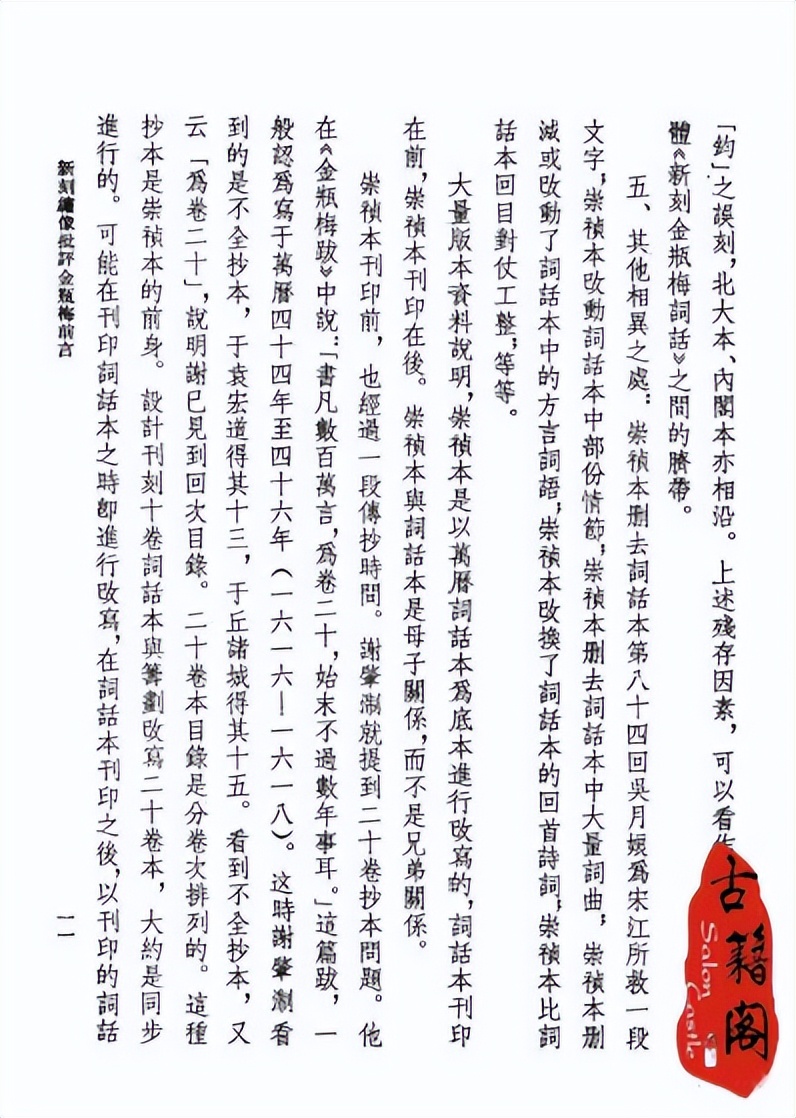 「鈞」之誤刻，北大本、內閣本亦相沿。上述殘存因素，可以看作
體《新刻金瓶梅詞話》之間的臍帶。
五、其他相異之處：崇禎本刪去詞話本第八十四回吳月娘為宋江所救一段
文字；崇禎本改動詞話本中部份情節；崇禎本刪去詞話本中大量詞曲；崇禎本刪
減或改動了詞話本中的方言詞語；崇禎本改換了詞話本的回首詩詞；崇禎本比詞
話本回目對仗工整；等等。
大量版本資料說明，崇禎本是以萬曆詞話本為底本進行改寫的，詞話本刊印
在前，崇禎本刊印在後。崇禎本與詞話本是母子關係，而不是兄弟關係。
崇禎本刊印前，也經過一段傳抄時間。謝肇淛就提到二十卷抄本問題。他
在《金瓶梅跋》中說：「書凡數百萬言，為卷二十，始末不過數年事耳。」這篇跋，一
般認為寫于萬曆四十四年至四十六年（一六一六—一六一八）。这時謝肇淛看
到的是不全抄本，于袁宏道得其十三，于丘諸城得其十五。看到不全抄本，又
云「為卷二十」，說明謝已見到回次目錄。二十卷本目錄是分卷次排列的。這種
抄本是崇禎本的前身。設計刊刻十卷詞話本與籌劃改寫二十卷本，大約是同步
進行的。可能在刊印詞話本之時即進行改寫，在詞話本刊印之後，以刊印的詞話
新刻繡像批評金瓶梅前言
一一
古籍閣
Salon Castle